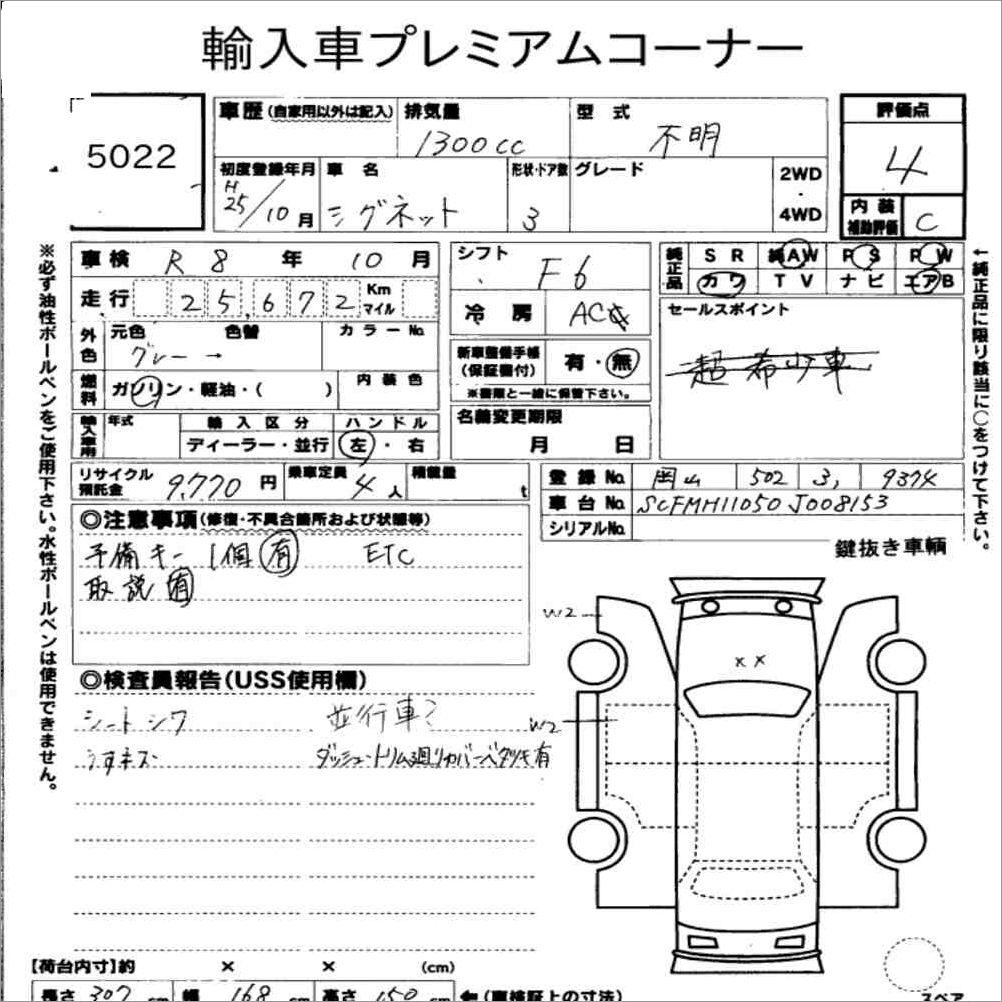 輸入車プレミアムコーナー
5022
車歴(自家用以外は記入)
排気量
1300cc
型式
不明
評価点
4
初度登録年月
H25/10月
車名
シグネット
形状・ドア数
3
グレード
2WD
・
4WD
内装
補助評価
C
車検 R8年 10月
シフト
F6
純正品
SR 純AW PS PW
カワ TV ナビ エアB
走行 25,672 Km
マイル
冷房 AC
セールスポイント
超希少車
外色
元色 色替 カラーNo.
グレー →
新車整備手帳
(保証書付)
有・無
※書類と一緒に保管下さい。
燃料
ガソリン・軽油・( )
内装色
輸入車用
年式
輸入区分
ディーラー・並行
ハンドル
左・右
名義変更期限
月 日
リサイクル
預託金
9,770円
乗車定員
4人
積載量
t
登録No. 岡山 502 ろ 9374
車台No. SCFMH11050J008153
シリアルNo.
鍵抜き車輌
◎注意事項(修復・不具合箇所および状態等)
予備キー1個有 ETC
取説有
◎検査員報告(USS使用欄)
シートシワ 並行車?
うすキズ ダッシュ・トリム廻りカバーベタツキ有
W2
W2
××
※必ず油性ボールペンをご使用下さい。水性ボールペンは使用できません。
←純正品に限り該当に○をつけて下さい。
【荷台内寸】約 × × (cm)
長さ 307 cm 幅 168 cm 高さ 150 cm ←(車検証上の寸法)
スペア